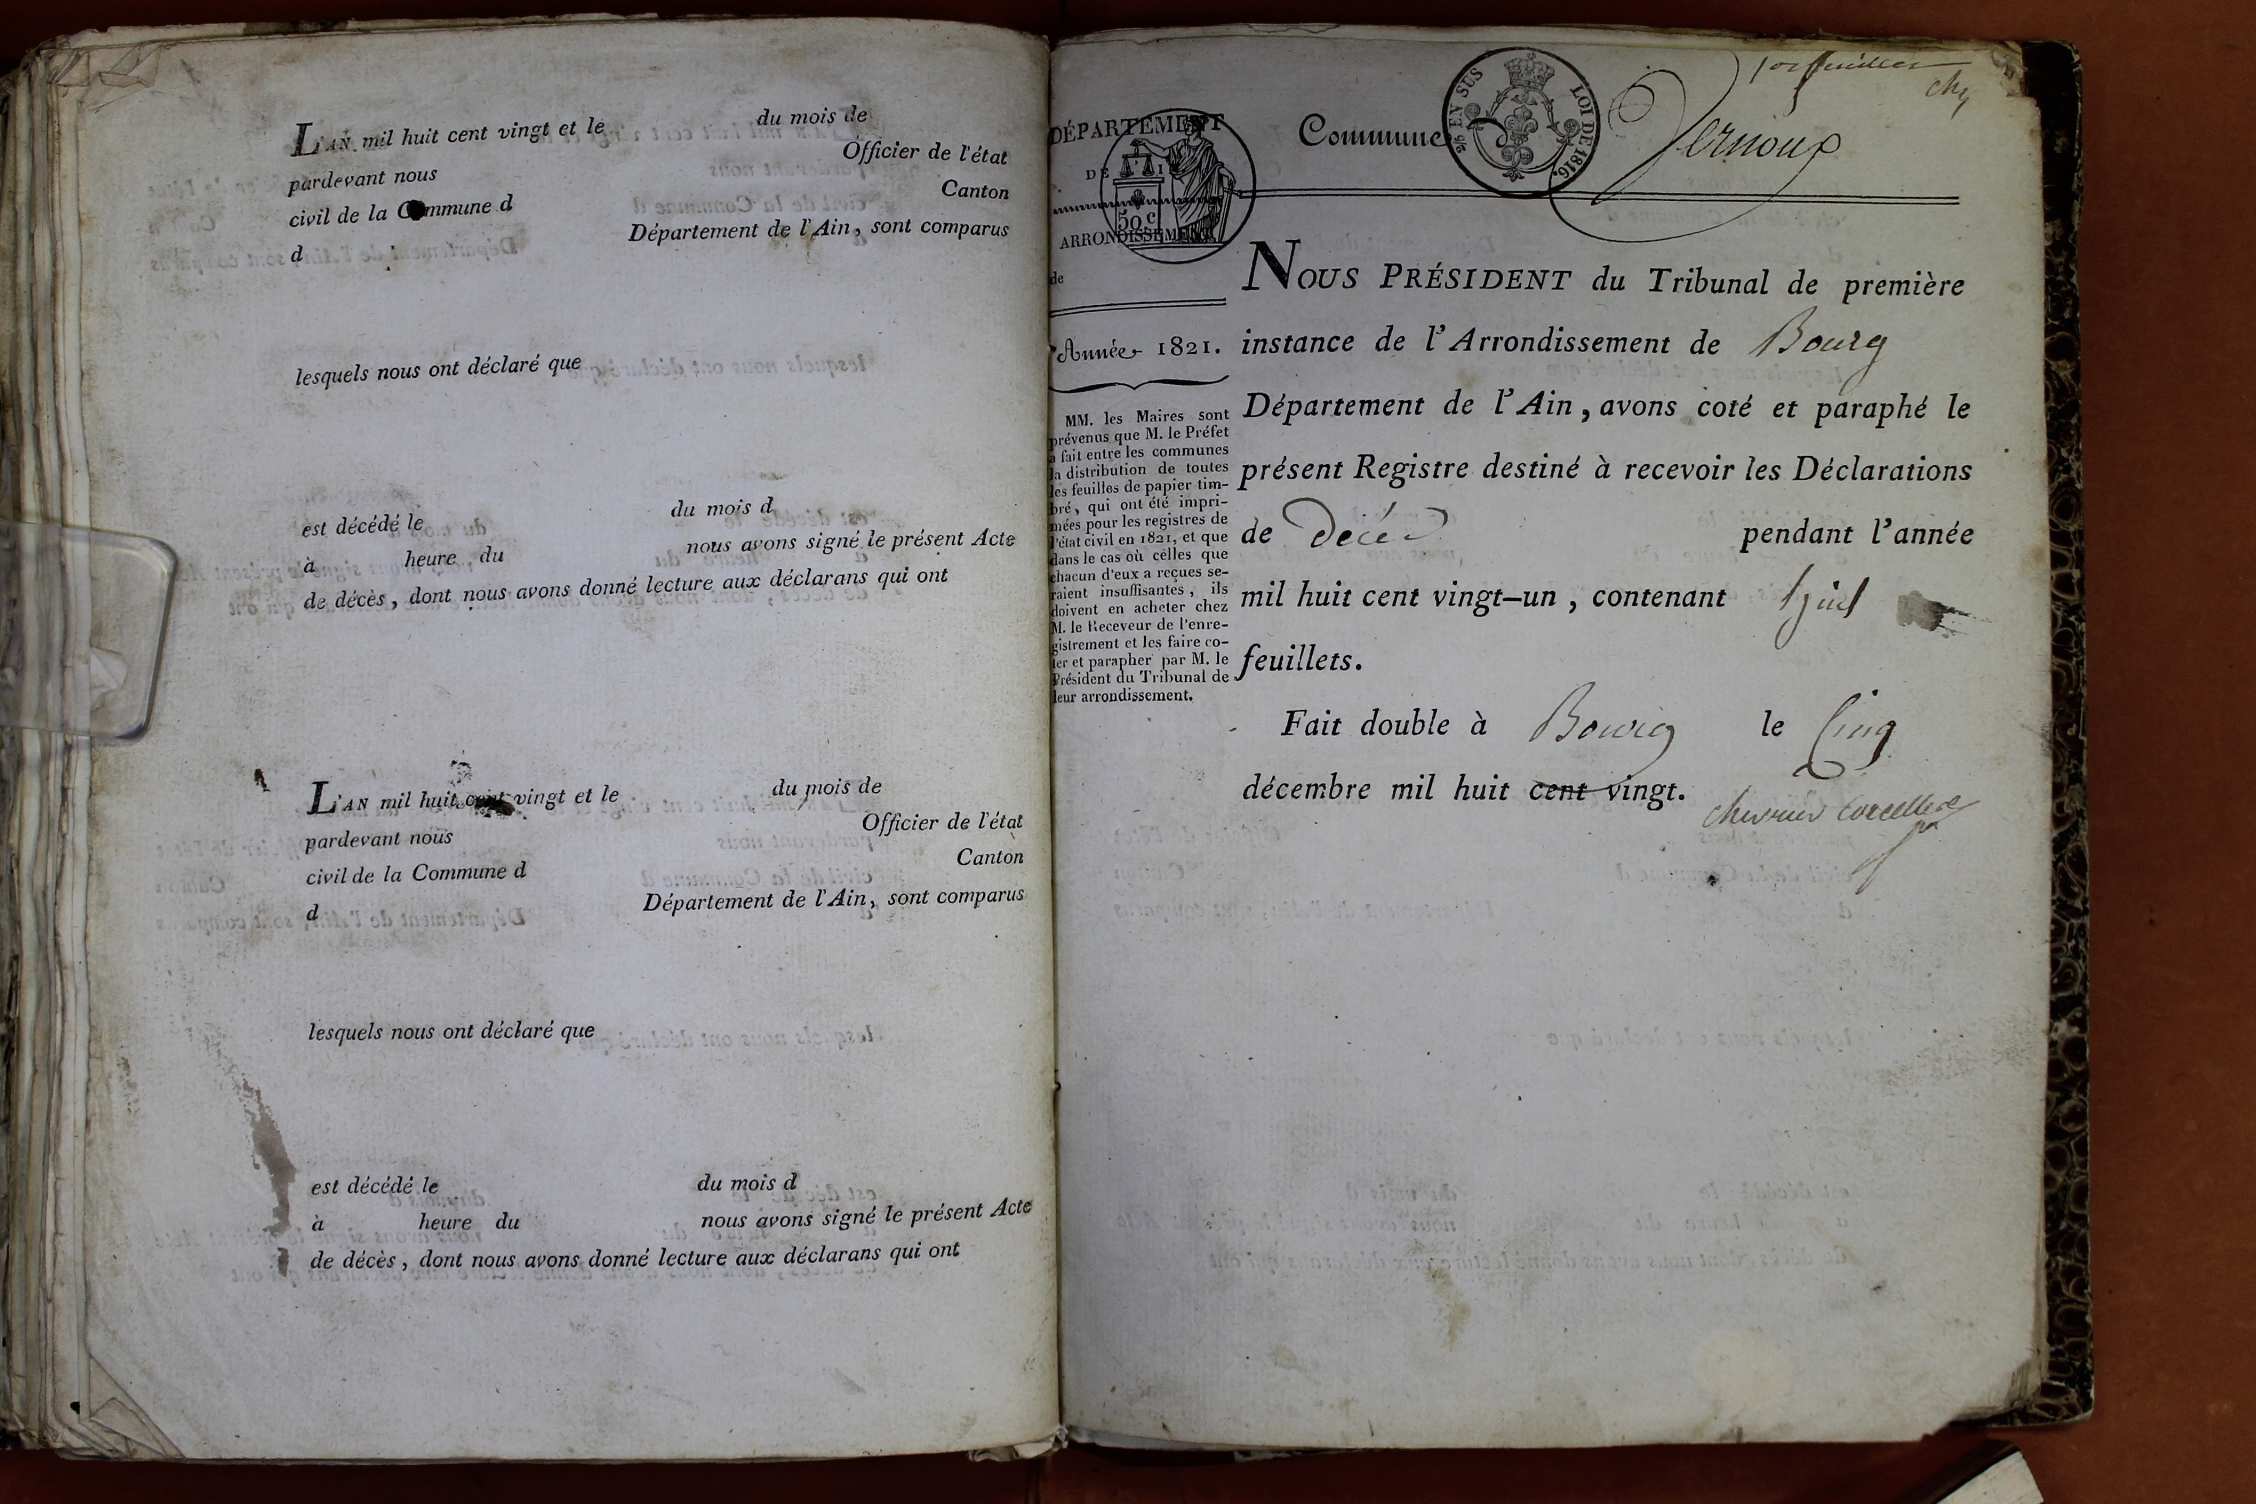 L'AN mil huit cent vingt et le du mois de
pardevant nous Officier de l'état
civil de la Commune d Canton
d Département de l'Ain, sont comparus
lesquels nous ont déclaré que
est décédé le du mois d
à heure du nous avons signé le présent Acte
de décès, dont nous avons donné lecture aux déclarans qui ont
L'AN mil huit cent vingt et le du mois de
pardevant nous Officier de l'état
civil de la Commune d Canton
d Département de l'Ain, sont comparus
lesquels nous ont déclaré que
est décédé le du mois d
à heure du nous avons signé le présent Acte
de décès, dont nous avons donné lecture aux déclarans qui ont
DÉPARTEMENT
DE L'AIN
50 c
ARRONDISSEMENT
de
Année 1821.
MM. les Maires sont
prévenus que M. le Préfet
a fait entre les communes
la distribution de toutes
les feuilles de papier tim-
bré, qui ont été impri-
mées pour les registres de
l'état civil en 1821, et que
dans le cas où celles que
chacun d'eux a reçues se-
raient insuffisantes, ils
doivent en acheter chez
M. le Receveur de l'enre-
gistrement et les faire co-
ter et parapher par M. le
Président du Tribunal de
leur arrondissement.
2/5 EN SUS LOI DE 1816.
Commune de Vernoux
NOUS PRÉSIDENT du Tribunal de première
instance de l'Arrondissement de Bourg
Département de l'Ain, avons coté et paraphé le
présent Registre destiné à recevoir les Déclarations
de décès pendant l'année
mil huit cent vingt-un, contenant
feuillets.
Fait double à Bourg le Cinq
décembre mil huit cent vingt.